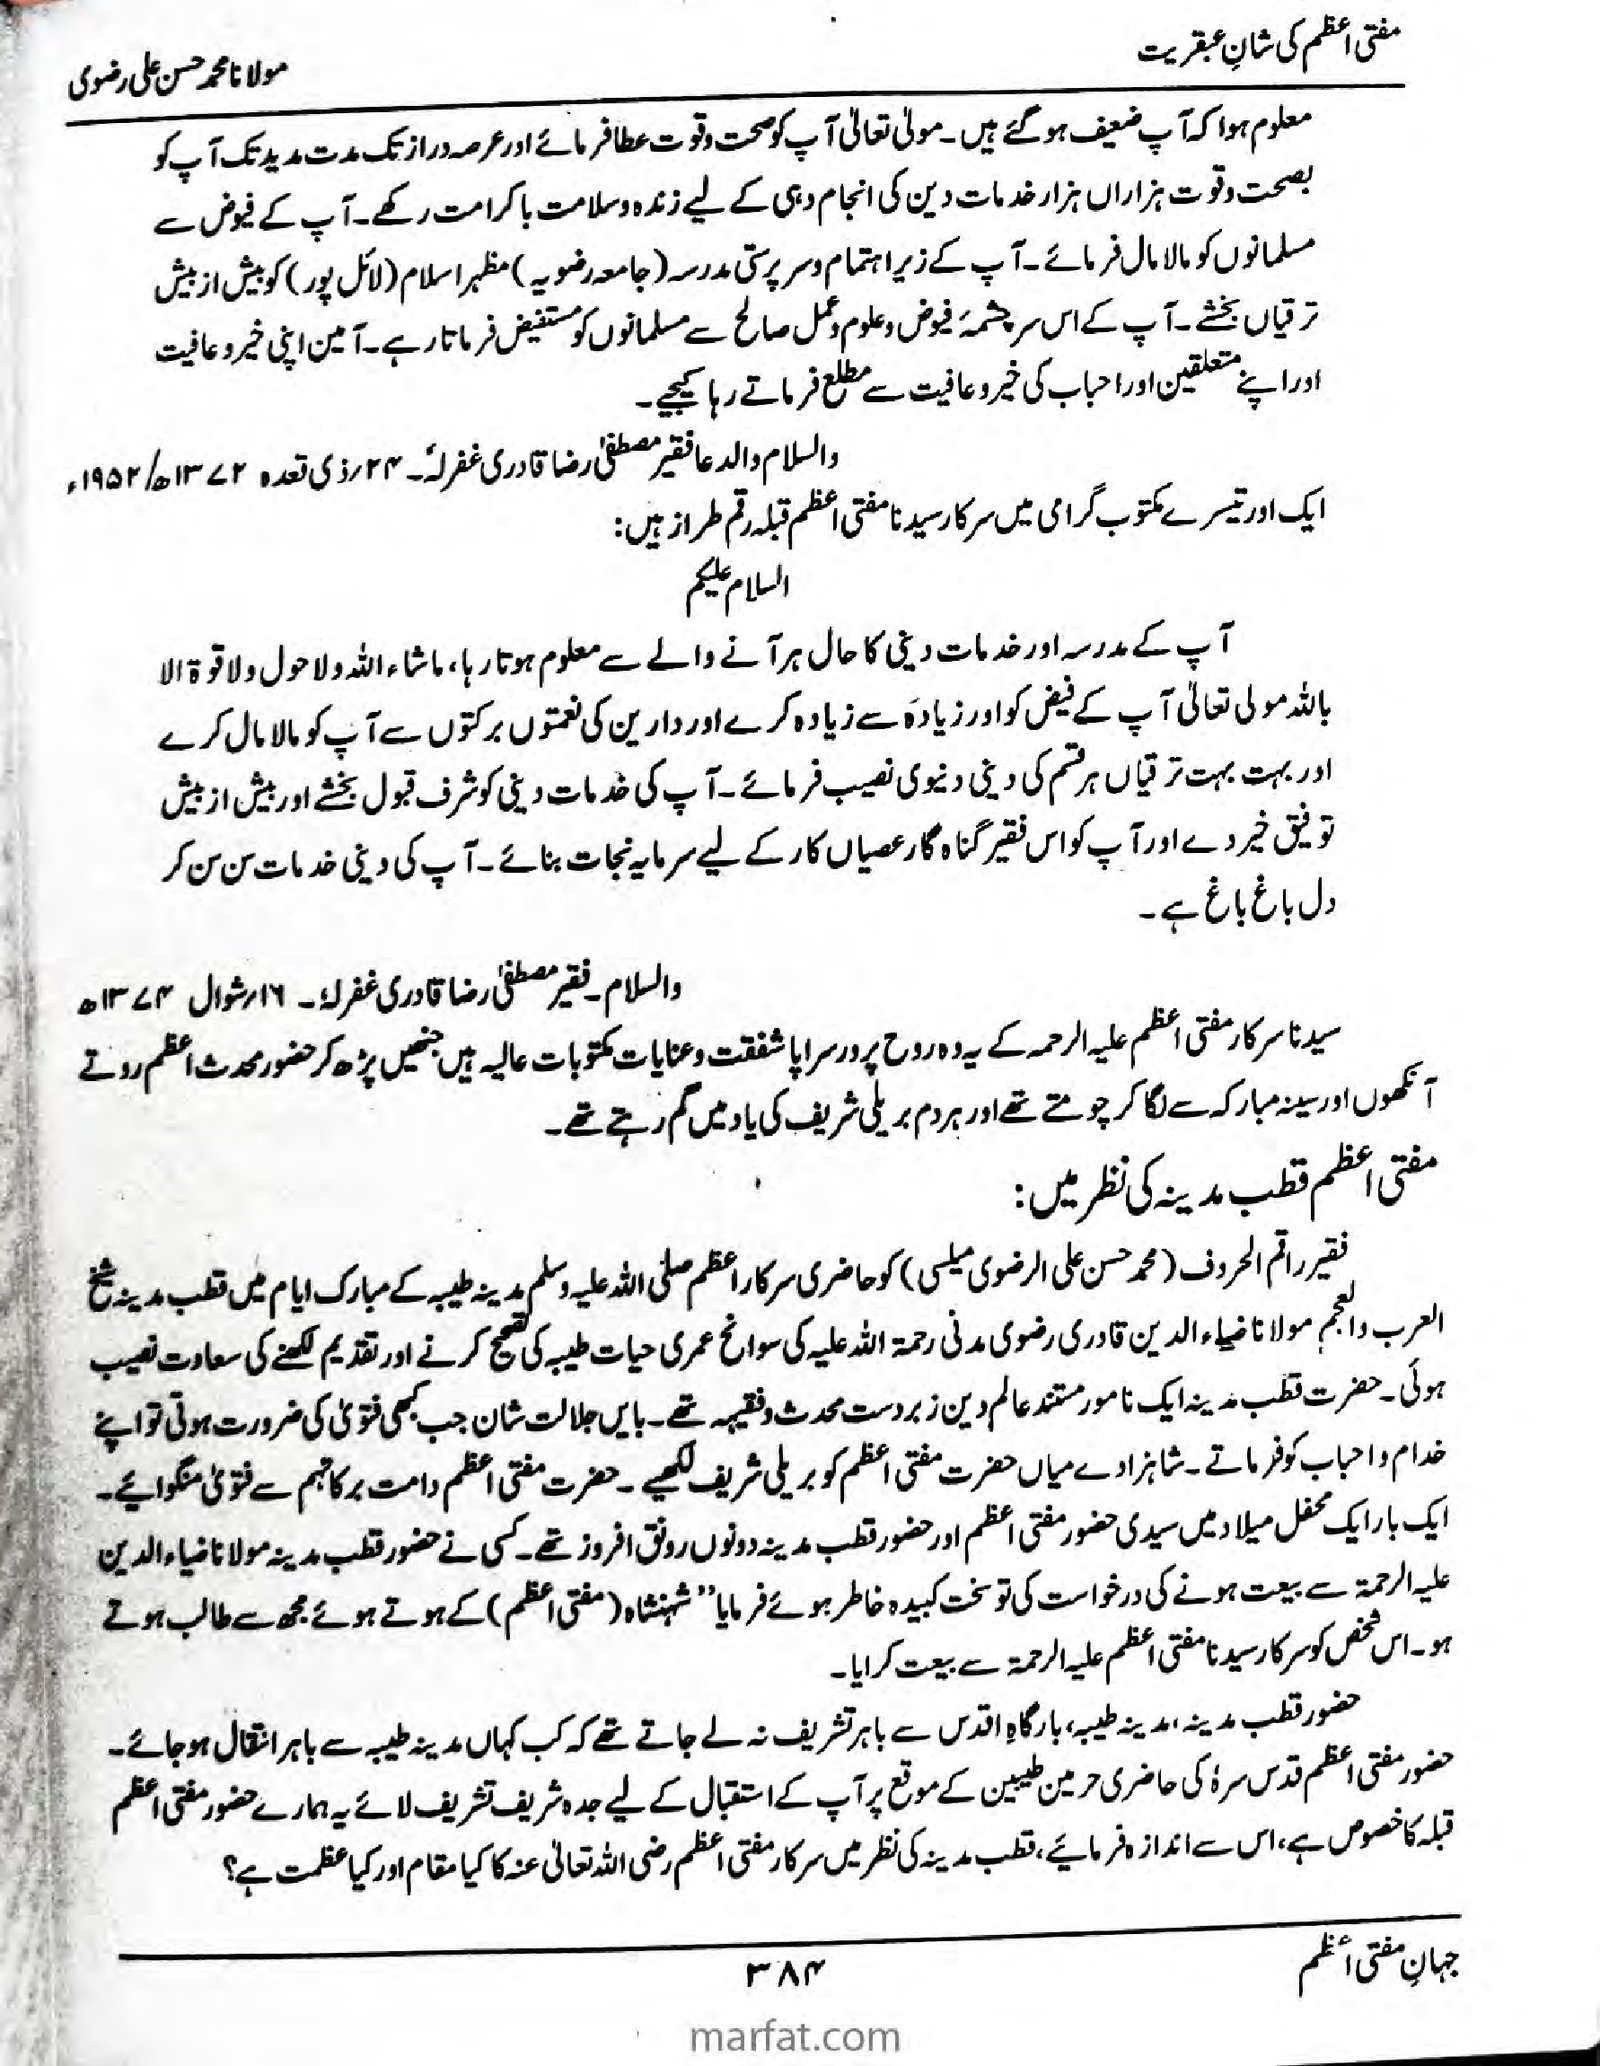 مفتی اعظم کی شانِ عبقریت
مولانا محمد حسن علی رضوی
معلوم ہوا کہ آپ ضعیف ہو گئے ہیں۔ مولیٰ تعالیٰ آپ کو صحت و قوت عطا فرمائے اور عرصہ دراز تک مدت مدید تک آپ کو
بصحت و قوت ہزاراں ہزار خدمات دین کی انجام دہی کے لیے زندہ و سلامت با کرامت رکھے۔ آپ کے فیوض سے
مسلمانوں کو مالا مال فرمائے۔ آپ کے زیر اہتمام و سرپرستی مدرسہ (جامعہ رضویہ) مظہر اسلام (لائل پور) کو بیش از بیش
ترقیاں بخشے۔ آپ کے اس سرچشمۂ فیوض و علوم و عمل صالح سے مسلمانوں کو مستفیض فرماتا رہے۔ آمین اپنی خیر و عافیت
اور اپنے متعلقین اور احباب کی خیر و عافیت سے مطلع فرماتے رہا کیجیے۔
والسلام والدعا فقیر مصطفیٰ رضا قادری غفرلہٗ۔ ۲۴؍ذی قعدہ ۱۳۷۲ھ/۱۹۵۲ء
ایک اور تیسرے مکتوب گرامی میں سرکار سیدنا مفتی اعظم قبلہ رقم طراز ہیں:
السلام علیکم
آپ کے مدرسہ اور خدمات دینی کا حال ہر آنے والے سے معلوم ہوتا رہا، ماشاء اللہ ولا حول ولا قوۃ الا
باللہ مولی تعالیٰ آپ کے فیض کو اور زیادہ سے زیادہ کرے اور دارین کی نعمتوں برکتوں سے آپ کو مالا مال کرے
اور بہت بہت ترقیاں ہر قسم کی دینی دنیوی نصیب فرمائے۔ آپ کی خدمات دینی کو شرف قبول بخشے اور بیش از بیش
توفیق خیر دے اور آپ کو اس فقیر گناہ گار عصیاں کار کے لیے سرمایہ نجات بنائے۔ آپ کی دینی خدمات سن سن کر
دل باغ باغ ہے۔
والسلام۔ فقیر مصطفیٰ رضا قادری غفرلہٗ۔ ۱۶؍شوال ۱۳۷۴ھ
سیدنا سرکار مفتی اعظم علیہ الرحمہ کے یہ وہ روح پرور سراپا شفقت و عنایات مکتوبات عالیہ ہیں جنھیں پڑھ کر حضور محدث اعظم روتے
آنکھوں اور سینہ مبارکہ سے لگا کر چومتے تھے اور ہر دم بریلی شریف کی یاد میں گم رہتے تھے۔
مفتی اعظم قطب مدینہ کی نظر میں:
فقیر راقم الحروف (محمد حسن علی الرضوی میلسی) کو حاضری سرکار اعظم صلی اللہ علیہ وسلم مدینہ طیبہ کے مبارک ایام میں قطب مدینہ شیخ
العرب والعجم مولانا ضیاء الدین قادری رضوی مدنی رحمۃ اللہ علیہ کی سوانح عمری حیات طیبہ کی تصحیح کرنے اور تقدیم لکھنے کی سعادت نصیب
ہوئی۔ حضرت قطب مدینہ ایک نامور مستند عالم دین زبردست محدث و فقیہہ تھے۔ بایں جلالت شان جب کبھی فتویٰ کی ضرورت ہوتی تو اپنے
خدام و احباب کو فرماتے۔ شاہزادے میاں حضرت مفتی اعظم کو بریلی شریف لکھیے۔ حضرت مفتی اعظم دامت برکاتہم سے فتویٰ منگوائیے۔
ایک بار ایک محفل میلاد میں سیدی حضور مفتی اعظم اور حضور قطب مدینہ دونوں رونق افروز تھے۔ کسی نے حضور قطب مدینہ مولانا ضیاء الدین
علیہ الرحمۃ سے بیعت ہونے کی درخواست کی تو سخت کبیدہ خاطر ہوئے فرمایا ”شہنشاہ (مفتی اعظم) کے ہوتے ہوئے مجھ سے طالب ہوتے
ہو۔ اس شخص کو سرکار سیدنا مفتی اعظم علیہ الرحمۃ سے بیعت کرایا۔
حضور قطب مدینہ، مدینہ طیبہ، بارگاہِ اقدس سے باہر تشریف نہ لے جاتے تھے کہ کب کہاں مدینہ طیبہ سے باہر انتقال ہو جائے۔
حضور مفتی اعظم قدس سرہٗ کی حاضری حرمین طیبین کے موقع پر آپ کے استقبال کے لیے جدہ شریف تشریف لائے یہ ہمارے حضور مفتی اعظم
قبلہ کا خصوص ہے، اس سے اندازہ فرمائیے، قطب مدینہ کی نظر میں سرکار مفتی اعظم رضی اللہ تعالیٰ عنہ کا کیا مقام اور کیا عظمت ہے؟
جہانِ مفتی اعظم
۳۸۴
marfat.com